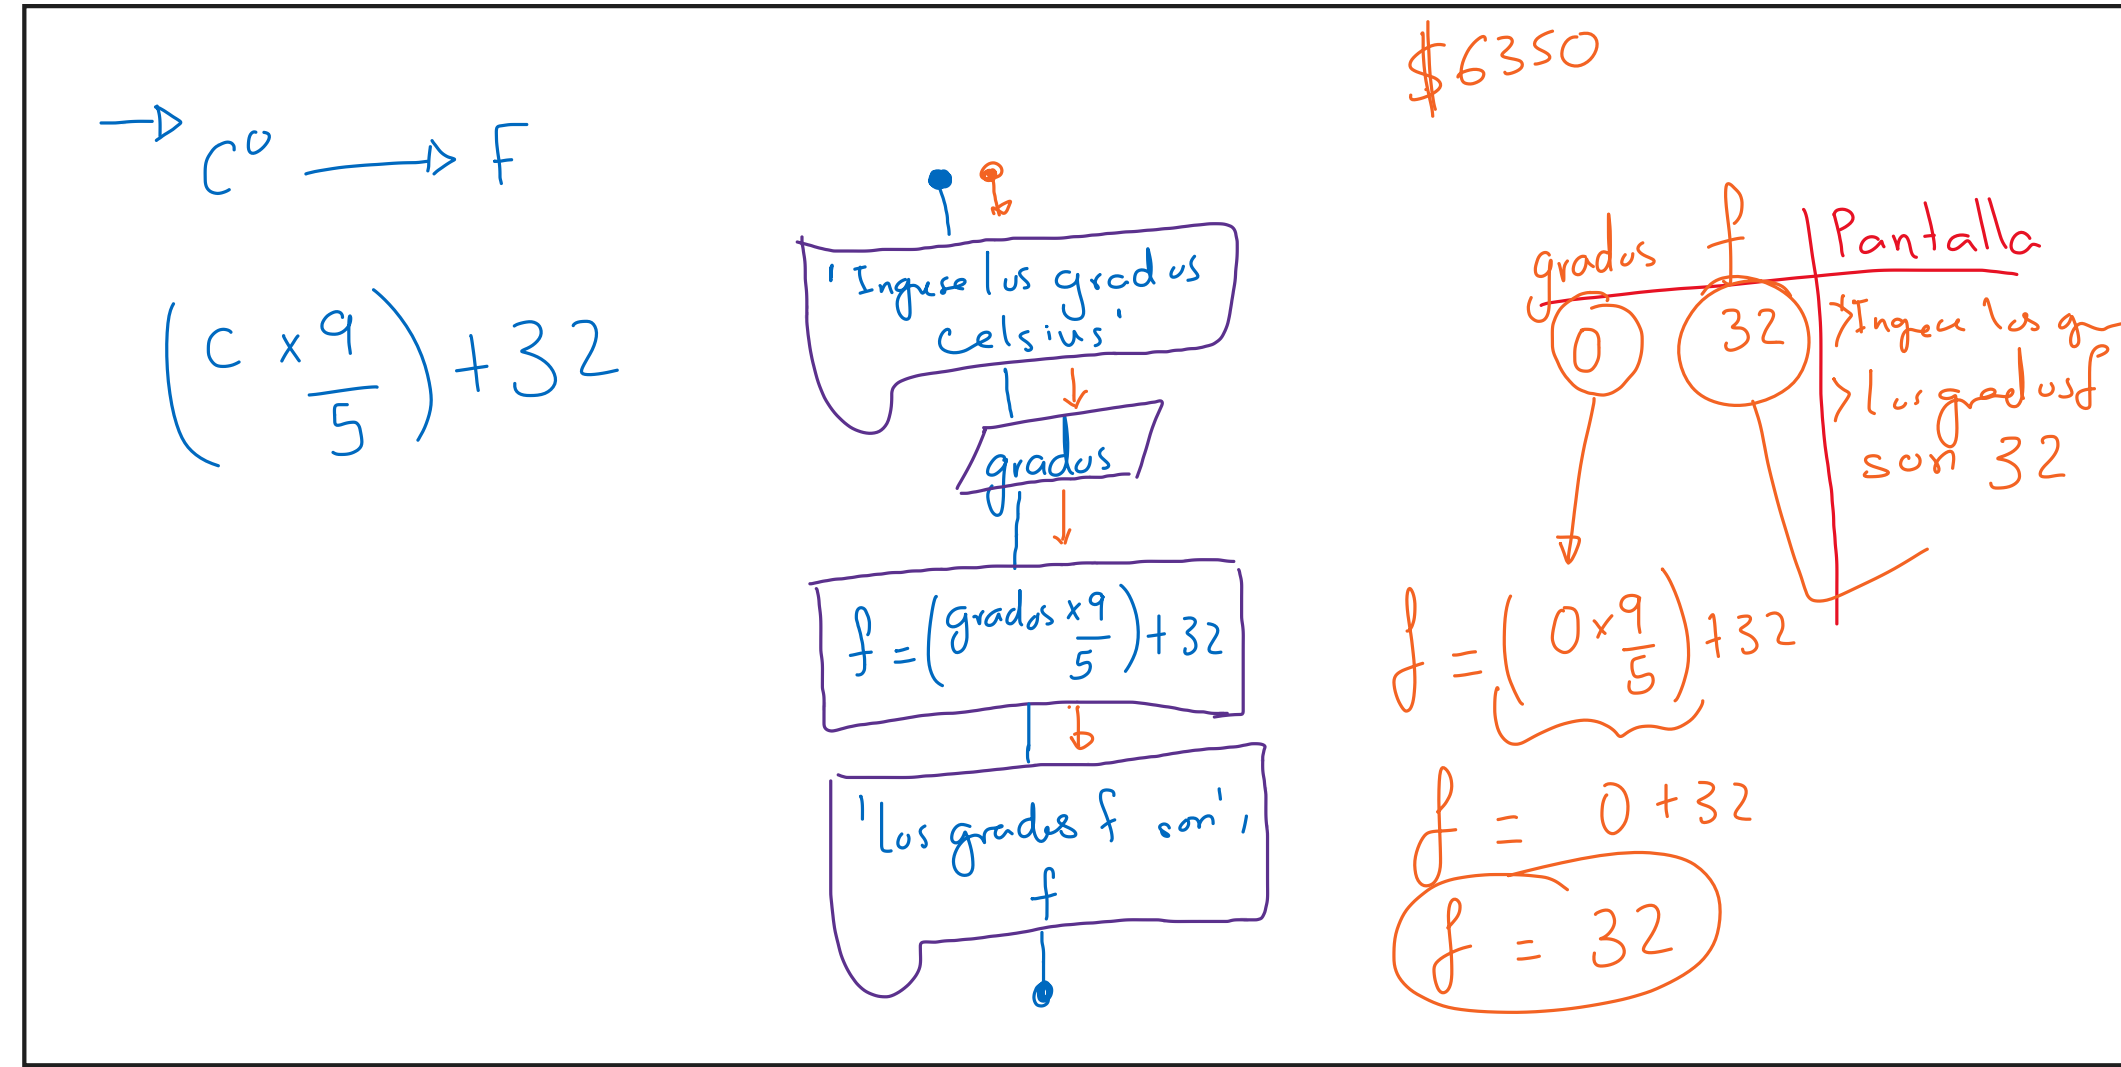 $6350
C° → F
(C × 9/5) + 32
'Ingrese los grados
Celsius'
grados
f = (grados × 9/5) + 32
'los grados f son',
f
grados f Pantalla
0 32
>Ingrese los g
>los grados f
son 32
f = (0 × 9/5) + 32
f = 0 + 32
f = 32